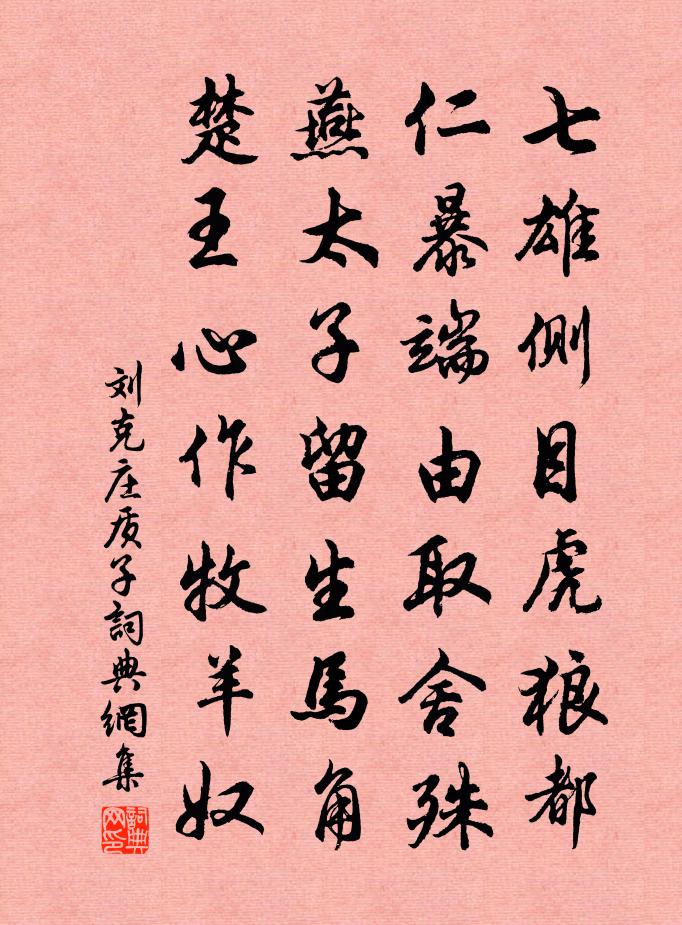 七雄侧目虎狼都
仁暴端由取舍殊
燕太子留生馬角
楚王心作牧羊奴
刘克庄质子詞典網集
詞典网印